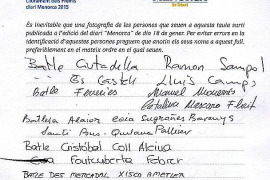 Lliurament dels Premis
diari Menorca 2015
Es inevitable que una fotografia de las persones que seuen a aquesta taula surti
publicada a l'edició del diari "Menorca" del dia 18 de gener. Per evitar errors en la
identificació d'aquestes persones preguem que anotin els seus noms a aquest full,
preferiblement en el mateix ordre en el qual seuen.
Batle Ciutadella Ramon Sampol
" Es Castell Lluís Camps
Batle Ferreries Manuel Monerris
Catalina Mercano
Batlessa Alaior Sugrañes Baranys
Santi Pons-Quintana Palliser
Batle Cristóbal Coll Alcina
Fontcuberta Febrer
BATLE DES MERCADAL XISCO AMETLLER